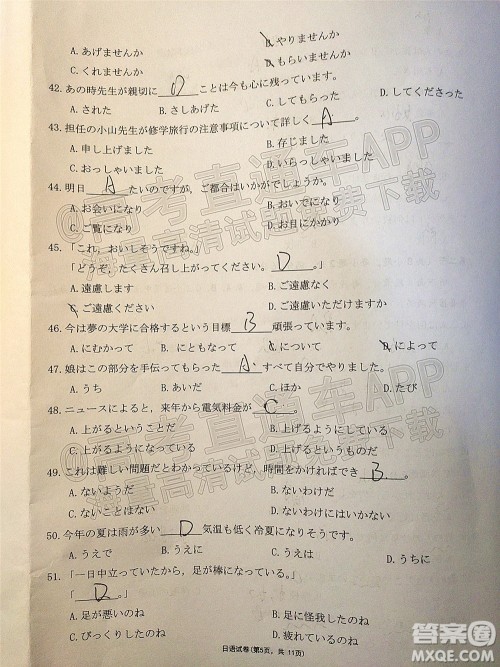 A. あげませんか　B. やりませんか
C. くれませんか　D. もらいませんか
42. あの時先生が親切に D ことは今も心に残っています。
A. された　B. さしあげた　C. してもらった　D. してくださった
43. 担任の小山先生が修学旅行の注意事項について詳しく A 。
A. 申し上げました　B. 存じました
C. おっしゃいました　D. いらっしゃいました
44. 明日 A たいのですが、ご都合はいかがでしょうか。
A. お会いになり　B. お目になり
C. ご覧になり　D. お目にかかり
45. 「これ，おいしそうですね。」
「どうぞ，たくさん召し上がってください。 D 。」
A. 遠慮します　B. ご遠慮なく
C. ご遠慮ください　D. ご遠慮いただけますか
46. 今は夢の大学に合格するという目標 B 頑張っています。
A. にむかって　B. にともなって　C. について　D. によって
47. 娘はこの部分を手伝ってもらった A すべて自分でやりました。
A. うち　B. あいだ　C. ほか　D. たび
48. ニュースによると，来年から電気料金が C 。
A. 上がるということだ　B. 上げるようにしている
C. 上がるようにしている　D. 上げるということだ
49. これは難しい問題だとわかっているけど，時間をかければでき B 。
A. ないようだ　B. ないだろう
C. ないことはない　D. ないわけにはいかない
50. 今年の夏は雨が多い D 気温も低く冷夏になりそうです。
A. うえで　B. うえに　C. うえは　D. うちに
51. 「一日中立っていたから，足が棒になっている。」
「 D 。」
A. 足が悪いのね　B. 足に怪我したのね
C. びっくりしたのね　D. 疲れているのね
日语试卷(第5页，共 11页)
@高考直通车APP
海量高清试题免费下载
@高考直通车APP
海量高清试题免费下载
答案圈
MXQE.COM